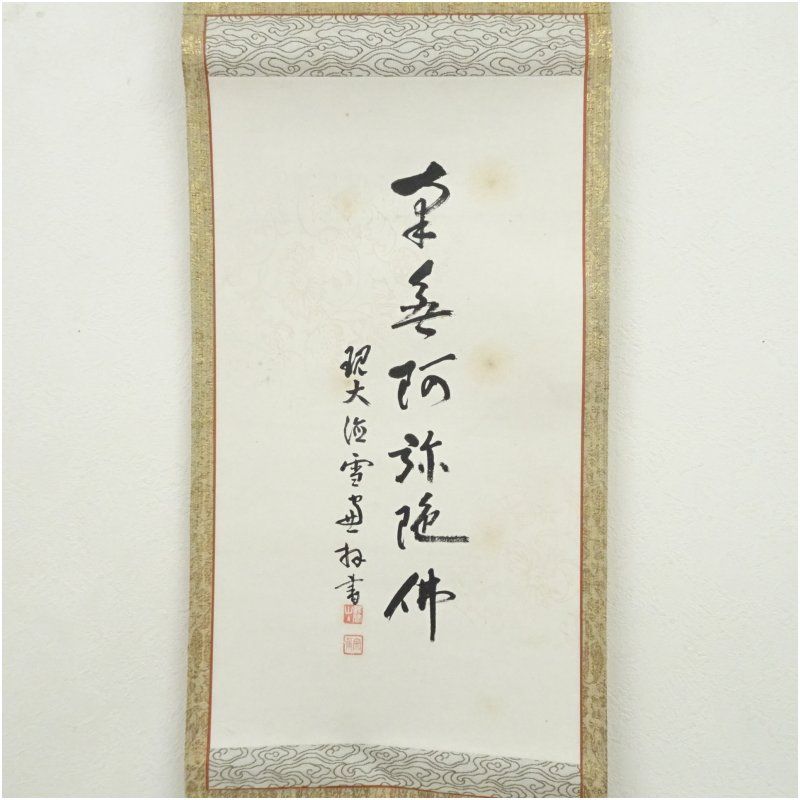 南無阿弥陀佛
現大徳雪窓拝書